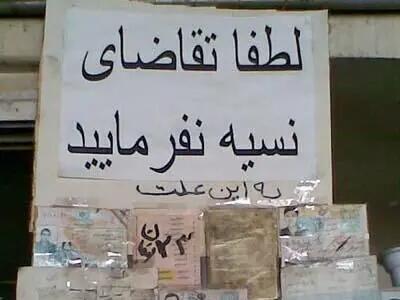 لطفا تقاضای
نسیه نفرمایید
به این علت